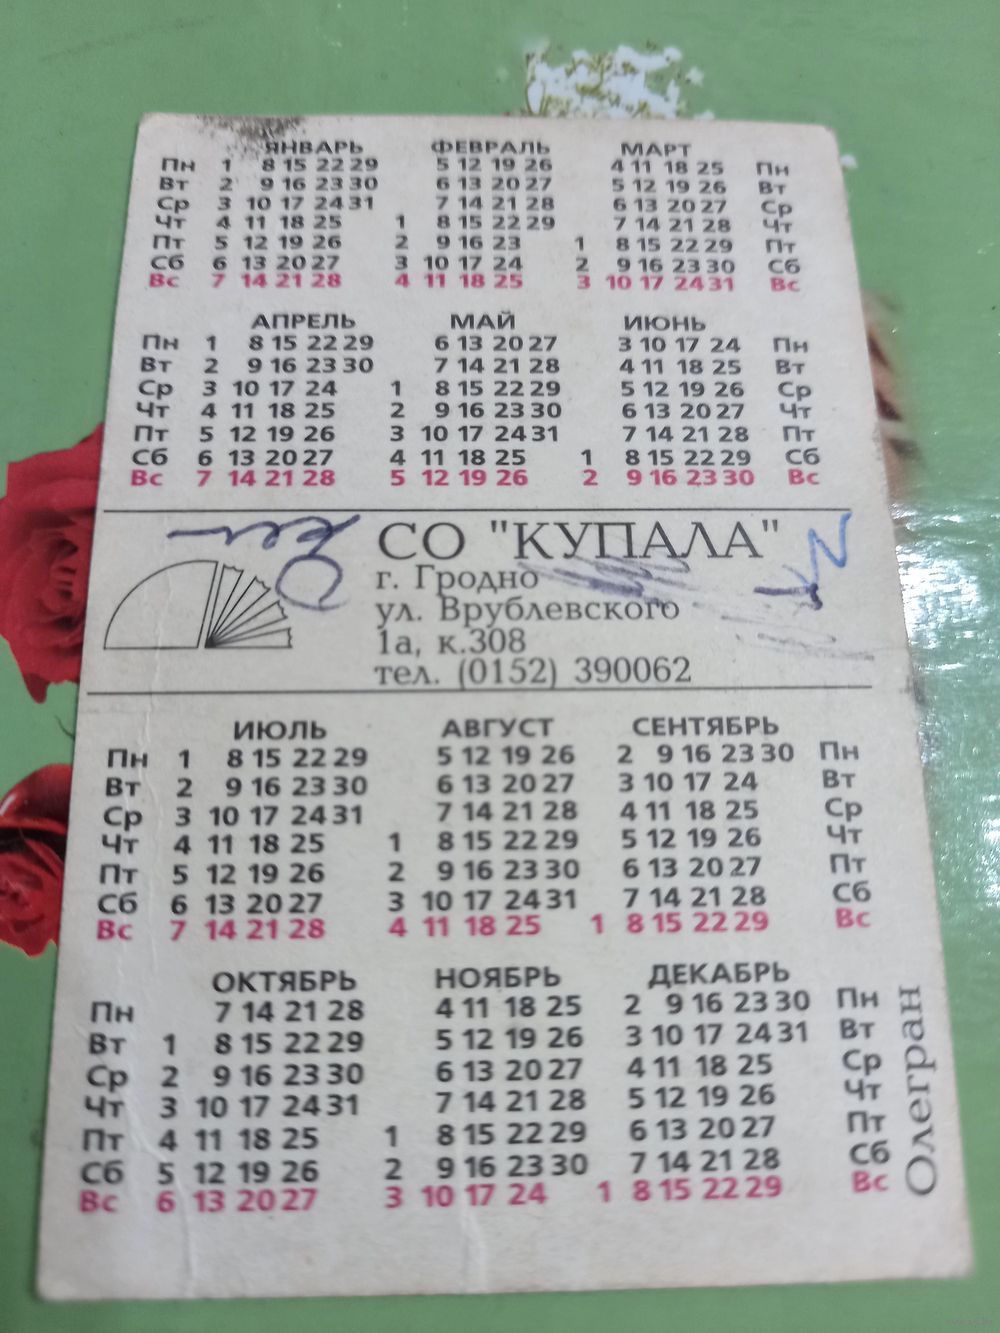 ЯНВАРЬ ФЕВРАЛЬ МАРТ
Пн 1 8 15 22 29 5 12 19 26 4 11 18 25 Пн
Вт 2 9 16 23 30 6 13 20 27 5 12 19 26 Вт
Ср 3 10 17 24 31 7 14 21 28 6 13 20 27 Ср
Чт 4 11 18 25 1 8 15 22 29 7 14 21 28 Чт
Пт 5 12 19 26 2 9 16 23 1 8 15 22 29 Пт
Сб 6 13 20 27 3 10 17 24 2 9 16 23 30 Сб
Вс 7 14 21 28 4 11 18 25 3 10 17 24 31 Вс
АПРЕЛЬ МАЙ ИЮНЬ
Пн 1 8 15 22 29 6 13 20 27 3 10 17 24 Пн
Вт 2 9 16 23 30 7 14 21 28 4 11 18 25 Вт
Ср 3 10 17 24 1 8 15 22 29 5 12 19 26 Ср
Чт 4 11 18 25 2 9 16 23 30 6 13 20 27 Чт
Пт 5 12 19 26 3 10 17 24 31 7 14 21 28 Пт
Сб 6 13 20 27 4 11 18 25 1 8 15 22 29 Сб
Вс 7 14 21 28 5 12 19 26 2 9 16 23 30 Вс
СО "КУПАЛА"
г. Гродно
ул. Врублевского
1а, к.308
тел. (0152) 390062
ИЮЛЬ АВГУСТ СЕНТЯБРЬ
Пн 1 8 15 22 29 5 12 19 26 2 9 16 23 30 Пн
Вт 2 9 16 23 30 6 13 20 27 3 10 17 24 Вт
Ср 3 10 17 24 31 7 14 21 28 4 11 18 25 Ср
Чт 4 11 18 25 1 8 15 22 29 5 12 19 26 Чт
Пт 5 12 19 26 2 9 16 23 30 6 13 20 27 Пт
Сб 6 13 20 27 3 10 17 24 31 7 14 21 28 Сб
Вс 7 14 21 28 4 11 18 25 1 8 15 22 29 Вс
ОКТЯБРЬ НОЯБРЬ ДЕКАБРЬ
Пн 7 14 21 28 4 11 18 25 2 9 16 23 30 Пн
Вт 1 8 15 22 29 5 12 19 26 3 10 17 24 31 Вт
Ср 2 9 16 23 30 6 13 20 27 4 11 18 25 Ср
Чт 3 10 17 24 31 7 14 21 28 5 12 19 26 Чт
Пт 4 11 18 25 1 8 15 22 29 6 13 20 27 Пт
Сб 5 12 19 26 2 9 16 23 30 7 14 21 28 Сб
Вс 6 13 20 27 3 10 17 24 1 8 15 22 29 Вс
Олегран